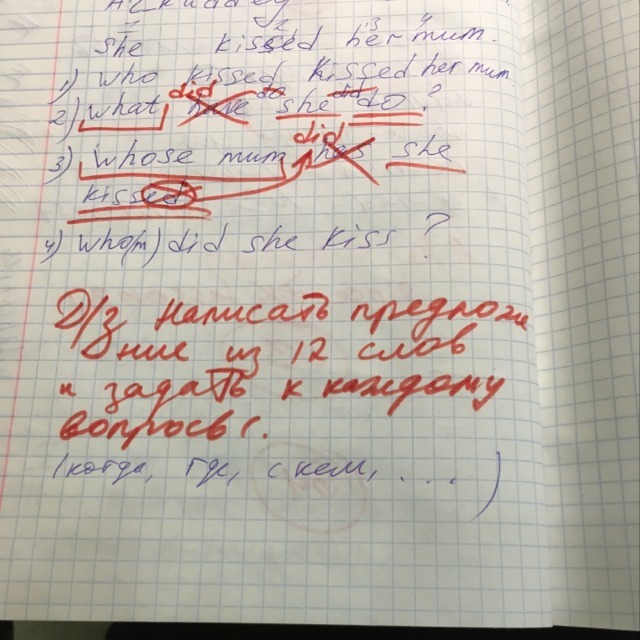 she kissed her mum.
1) who kissed kissed her mum.
did
2) what have she do ?
did
3) whose mum has she
kissed
4) who(m) did she kiss ?
Д/з Написать предложе
ние из 12 слов
и задать к каждому
вопросы.
(когда, где, с кем, ....)